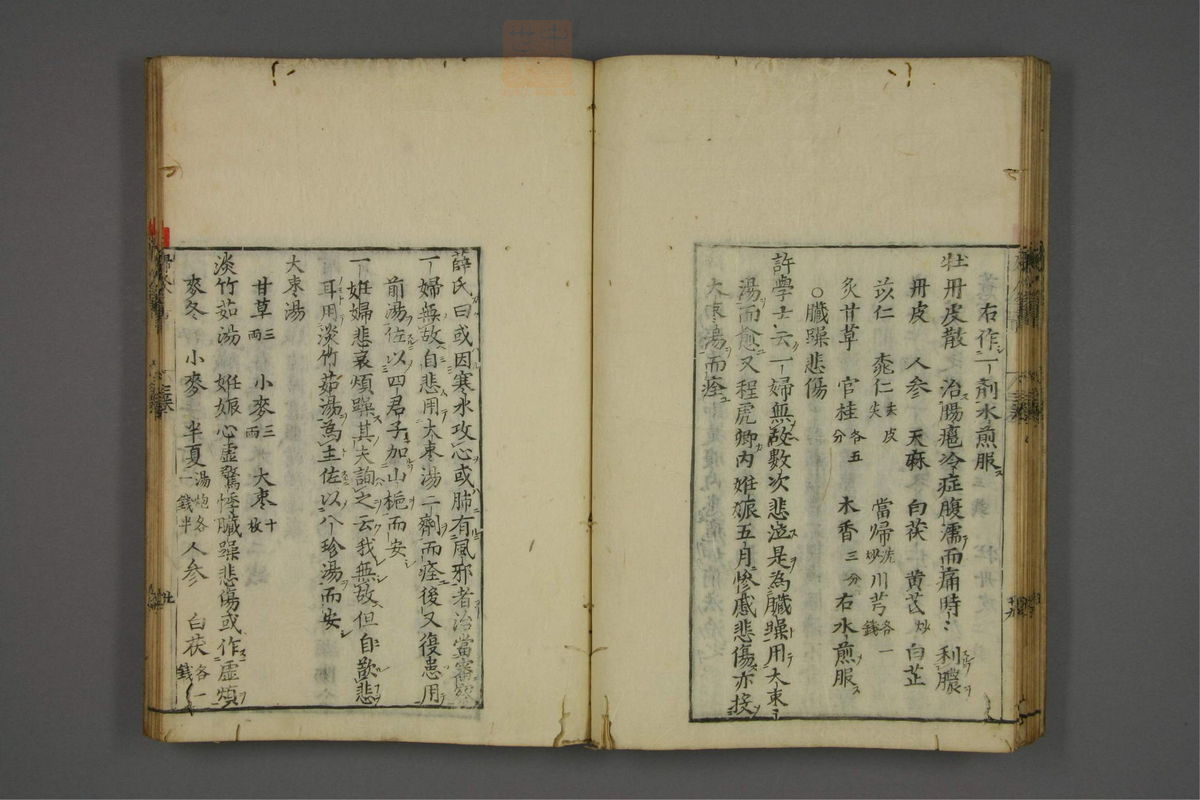 右作一剤水煎服
牡丹皮散 治腸癰冷症腹濡而痛時〻利膿
丹皮 人参 天麻 白茯 黄芪炒 白芷
苡仁 桃仁去皮尖 當歸 川芎各一錢
炙甘草 官桂各五分 木香三分 右水煎服
○臟躁悲傷
許學士云一婦無故數次悲泣是為臟躁用大棗
湯而愈又程虎卿内妊娠五月慘慼悲傷亦投
大棗湯而痊
薛氏曰或因寒水攻心或肺有風邪者治當審察
一婦無故自悲用大棗湯二劑而痊後又復患用
前湯佐以四君子加山梔而安
一妊婦悲哀煩躁其夫詢之云我無故但自歎悲
耳用淡竹茹湯為主佐以八珍湯而安
大棗湯
甘草三兩 小麥三兩 大棗十枚
淡竹茹湯 妊娠心虚驚悸臟躁悲傷或作虚煩
麥冬 小麥 半夏湯炮各一錢半 人参 白茯各一錢